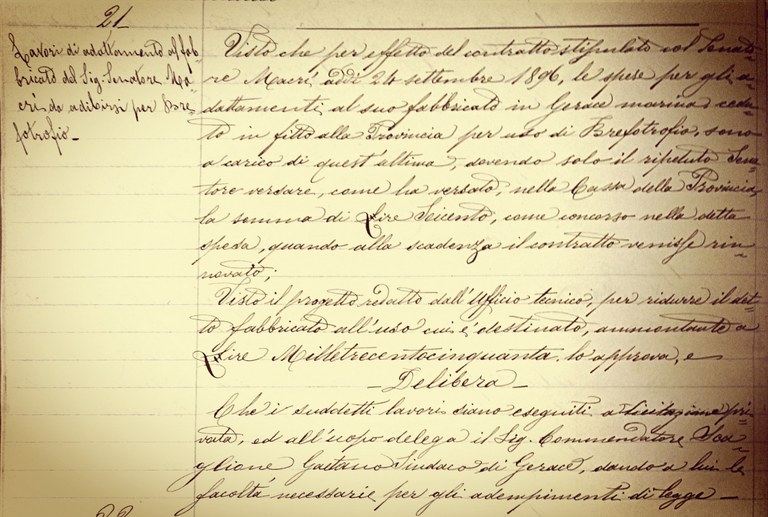 21
Lavori di adattamento al fab-
bricato del Sig. Senatore Ma-
crì da adibirsi per Bre-
fotrofio_
Visto che per effetto del contratto stipulato col Senato-
re Macrì addì 24 settembre 1896, le spese per gli a-
dattamenti al suo fabbricato in Gerace marina cedu-
to in fitto alla Provincia per uso di Brefotrofio, sono
a carico di quest'ultima, dovendo solo il ripetuto Sena-
tore versare, come ha versato, nella Cassa della Provincia,
la somma di Lire Seicento, come concorso nella detta
spesa, quando alla scadenza il contratto venisse rin-
novato;
Visto il progetto redatto dall'Ufficio tecnico, per ridurre il det-
to fabbricato all'uso cui è destinato, ammontante a
Lire Milletrecentocinquanta lo approva, e
_Delibera_
Che i suddetti lavori siano eseguiti a licitazione pri-
vata, ed all'uopo delega il Sig. Commendatore Sca-
glione Gaetano Sindaco di Gerace, dando a lui le
facoltà necessarie per gli adempimenti di legge_